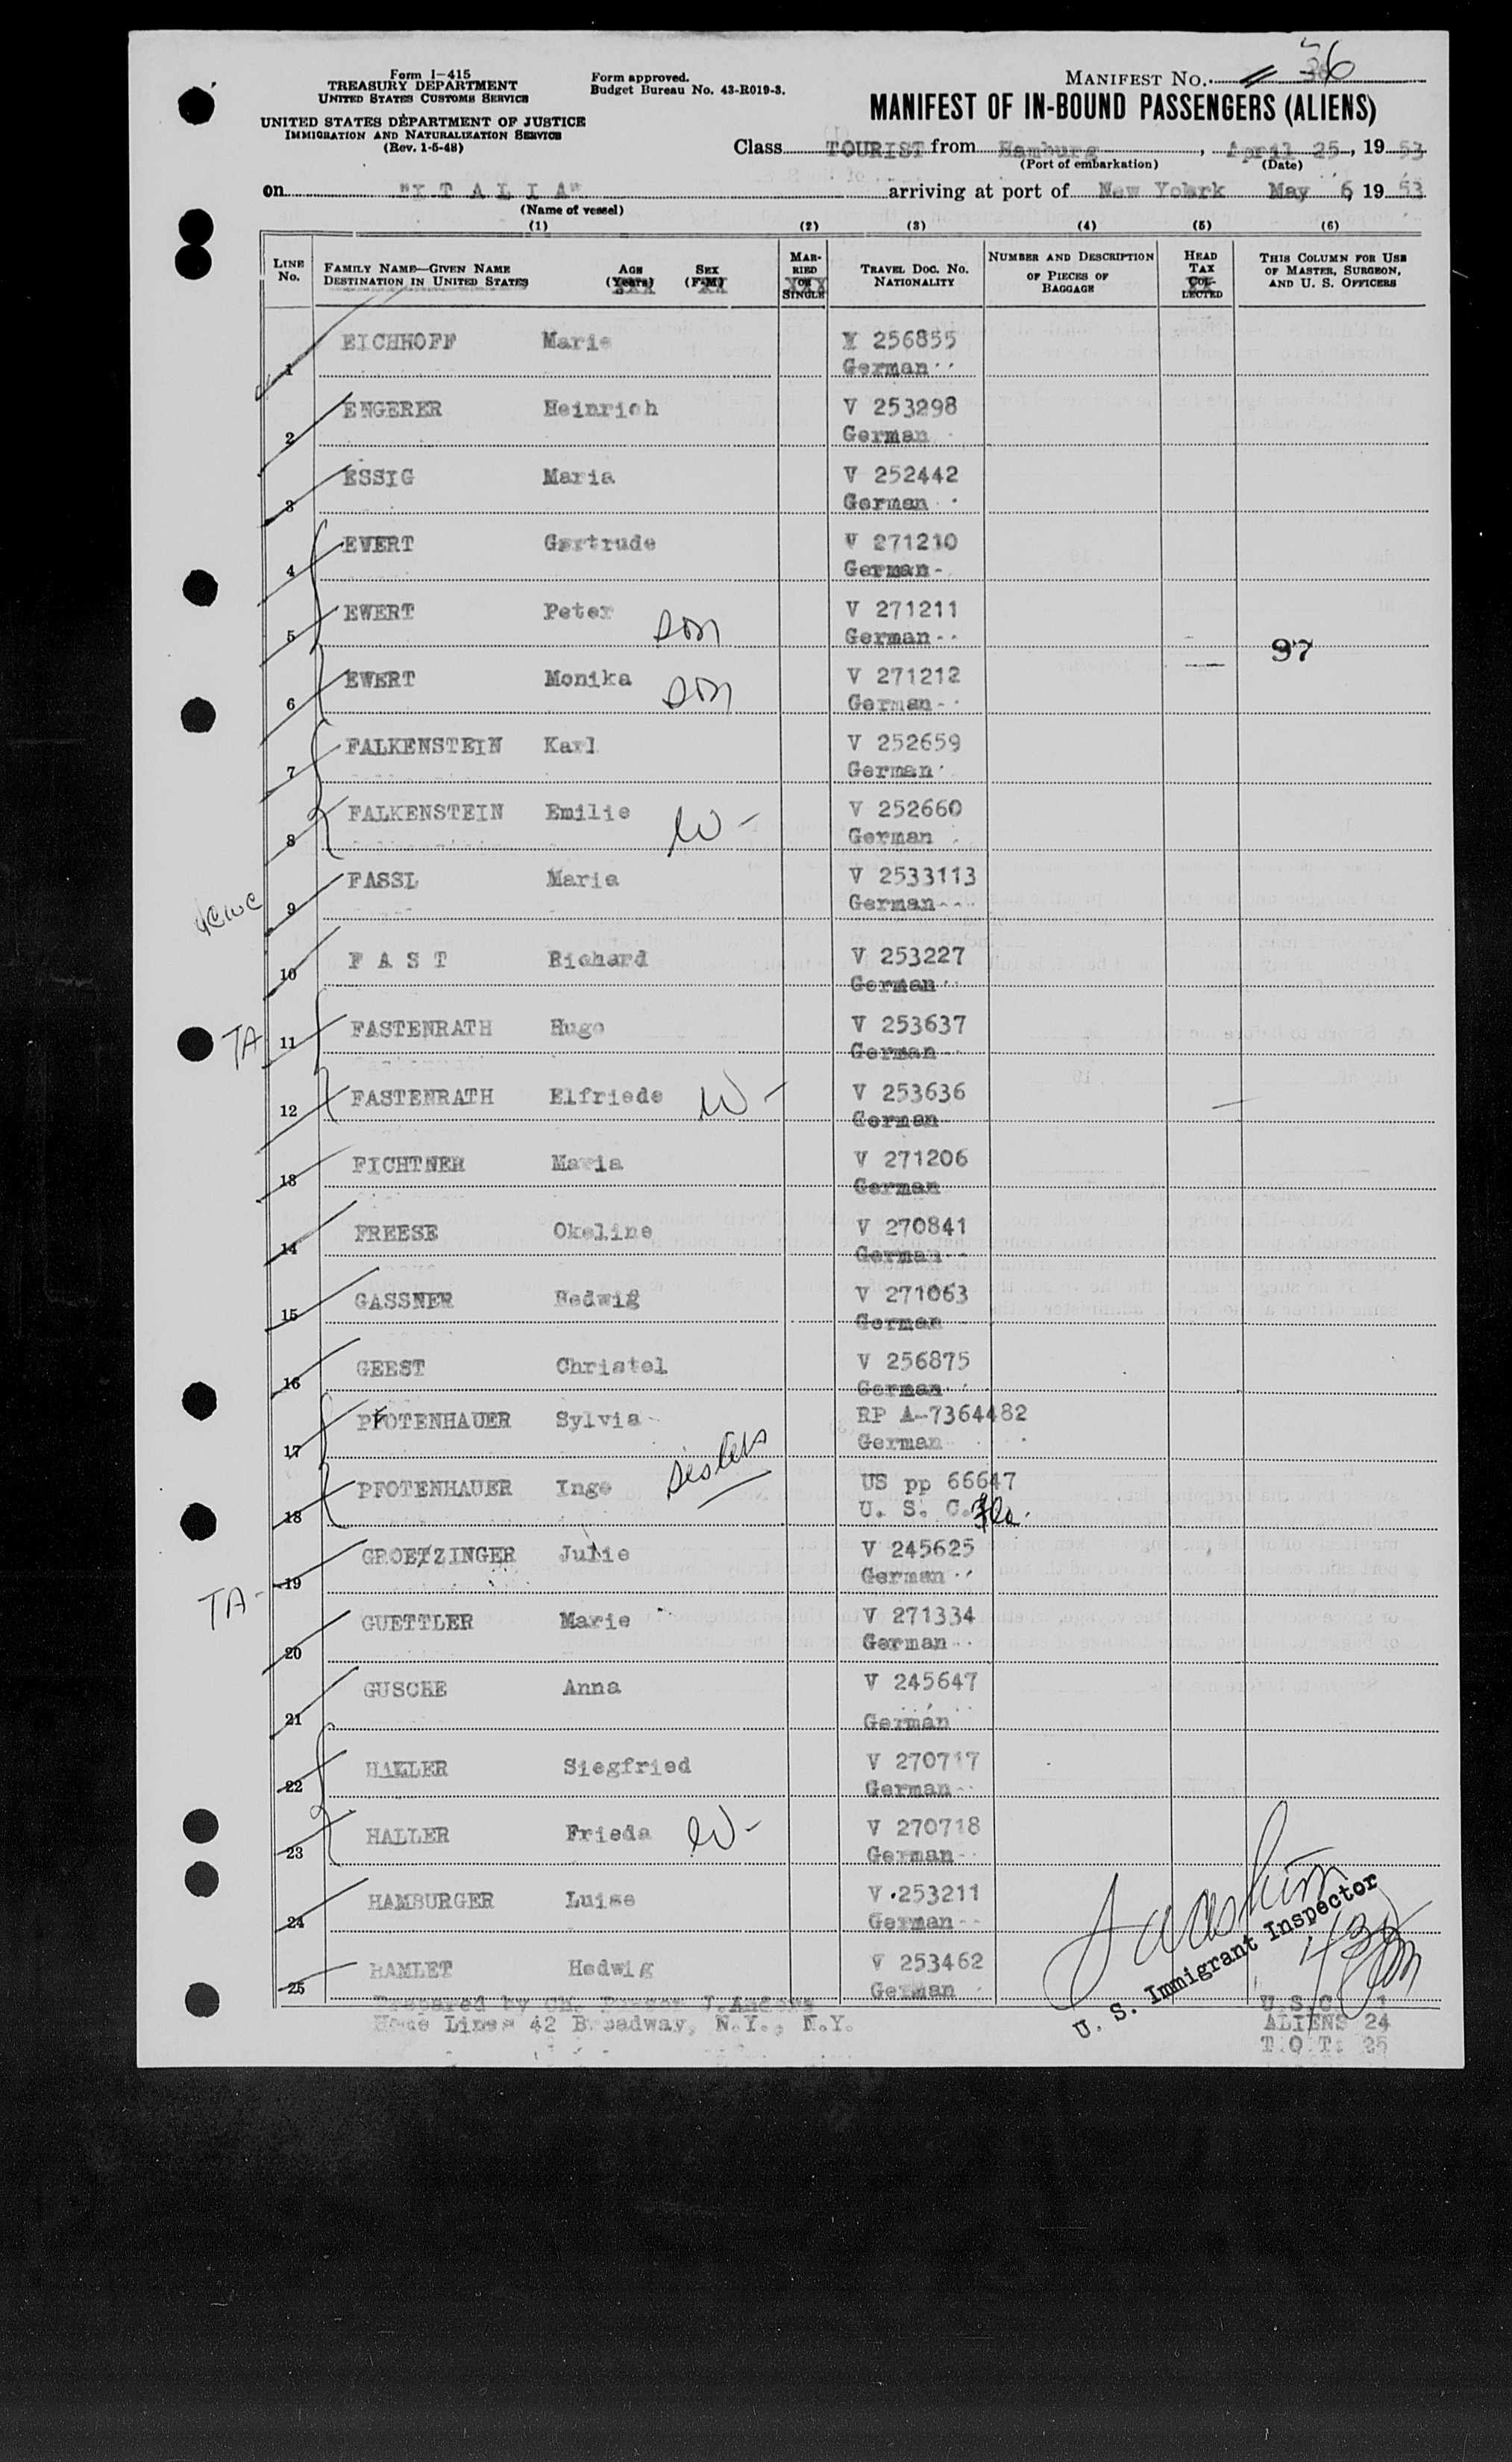 Form I-415
TREASURY DEPARTMENT
UNITED STATES CUSTOMS SERVICE
UNITED STATES DEPARTMENT OF JUSTICE
IMMIGRATION AND NATURALIZATION SERVICE
(Rev. 1-5-48)
Form approved.
Budget Bureau No. 43-R019-3.
MANIFEST NO. 36
MANIFEST OF IN-BOUND PASSENGERS (ALIENS)
Class TOURIST from Hamburg, April 25, 19 53
(Port of embarkation) (Date)
on "I T A L I A" arriving at port of New Yolrk May 6, 19 53
(Name of vessel)
(1) (2) (3) (4) (5) (6)
LINE No.
FAMILY NAME—GIVEN NAME
DESTINATION IN UNITED STATES
AGE (Years)
SEX (F-M)
MARRIED OR SINGLE
TRAVEL DOC. NO.
NATIONALITY
NUMBER AND DESCRIPTION OF PIECES OF BAGGAGE
HEAD TAX COLLECTED
THIS COLUMN FOR USE OF MASTER, SURGEON, AND U. S. OFFICERS
1 EICHHOFF Marie V 256855
German
2 ENGERER Heinrich V 253298
German
3 ESSIG Maria V 252442
German
4 EWERT Gertrude V 271210
German
5 EWERT Peter son V 271211
German
97
6 EWERT Monika son V 271212
German
7 FALKENSTEIN Karl V 252659
German
8 FALKENSTEIN Emilie W - V 252660
German
9 FASSL Maria V 2533113
German
10 F A S T Richard V 253227
German
TA 11 FASTENRATH Hugo V 253637
German
12 FASTENRATH Elfriede W - V 253636
German
13 FICHTNER Maria V 271206
German
14 FREESE Okeline V 270841
German
15 GASSNER Hedwig V 271063
German
16 GEEST Christel V 256875
German
17 PFOTENHAUER Sylvia RP A-7364482
German
sisters
18 PFOTENHAUER Inge US pp 66647
U. S. C.
19 GROETZINGER Julie V 245625
German
TA -
20 GUETTLER Marie V 271334
German
21 GUSCHE Anna V 245647
German
22 HALLER Siegfried V 270717
German
23 HALLER Frieda W - V 270718
German
24 HAMBURGER Luise V 253211
German
25 HAMLET Hedwig V 253462
German
U. S. Immigrant Inspector
Prepared by Ch.
Home Lines 42 Broadway, N.Y., N.Y.
U.S.C. 1
ALIENS 24
T.O.T: 25